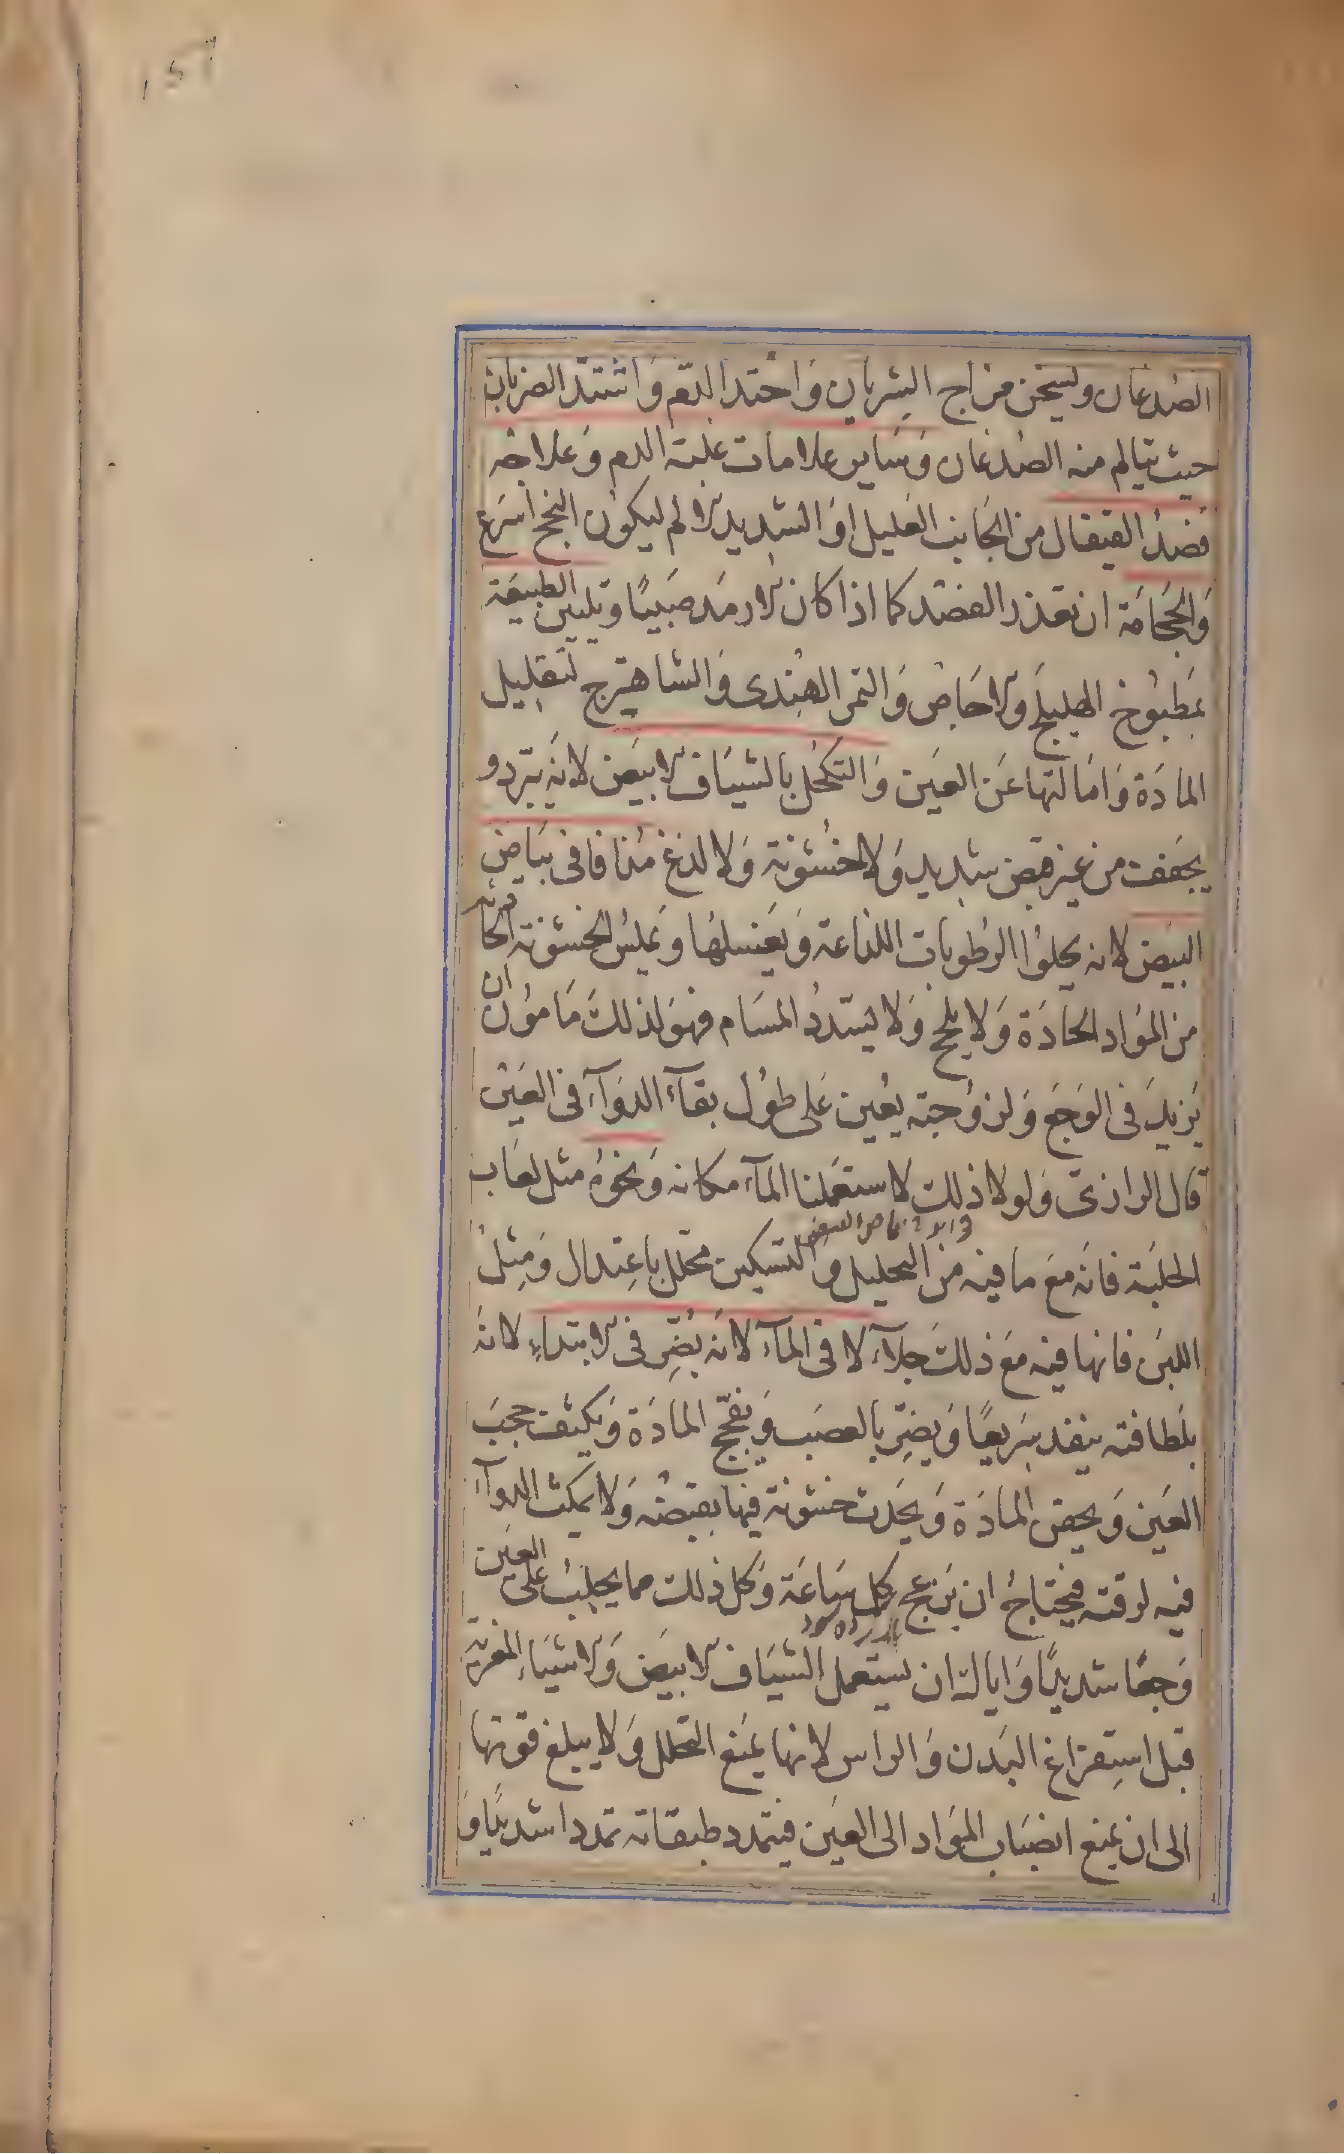 الصدغان ويسخن مزاج الشريان واحتد الدم واشتد الضربان
حيث يتالم منه الصدغان وساير علامات غلبة الدم وعلاجه
فصد القيفال من الجانب العليل او الشديد الالم ليكون النجح اسرع
والحجامة ان تعذر الفصد كما اذا كان الارمد صبيا وتليين الطبيعة
بمطبوخ الهليلج والاجاص والتمر الهندى والشاهترج لتقليل
المادة وامالتها عن العين والتكحل بالشياف الابيض لانه يبرد و
يجفف من غير قبض شديد ولا خشونة ولا لدغ مدافا فى بياض
البيض لانه يجلوا الرطوبات اللذاعة ويغسلها ويملس الخشونة الحادثة
من المواد الحادة ولا يلحج ولا يسدد المسام فهو لذلك مامون ان
يزيد فى الوجع ولزوجته يعين على طول بقاء الدواء فى العين
قال الرازى ولولا ذلك لاستعملنا الماء مكانه ونحوه مثل لعاب
الحلبة فانه مع ما فيه من التحليل والتسكين محلل باعتدال ومثل
اللبن فانها فيه مع ذلك جلاء لا فى الماء لانه يضر فى الابتداء لانه
بلطافته ينفذ سريعا ويضر بالعصب ويفجج المادة ويكثف حجب
العين ويحقن المادة ويحدث خشونة فيها بقبضه ولا يمكث الدواء
فيه لرقته فيحتاج ان يزعج كل ساعة وكل ذلك مما يجلب على العين
وجعا شديدا واياك ان يستعمل الشياف الابيض والاشياء المغرية
قبل استفراغ البدن والراس لانها يمنع التحلل ولا يبلغ قوتها
الى ان يمنع انضباب المواد الى العين فيتمدد طبقاته تمددا شديدا و